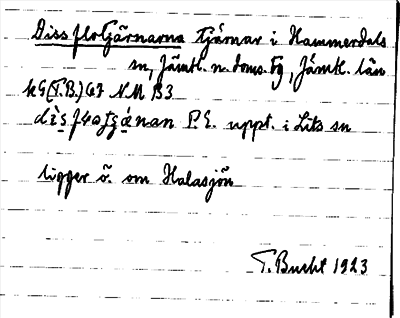 Dissflotjärnarna tjärnar i Hammerdals
sn, Jämtl. n. doms. fg, Jämtl. län
kG (T.B.) 67 N.M B3
P.E. uppt. i Lits sn
ligger ö. om Halasjön
T. Bucht 1923